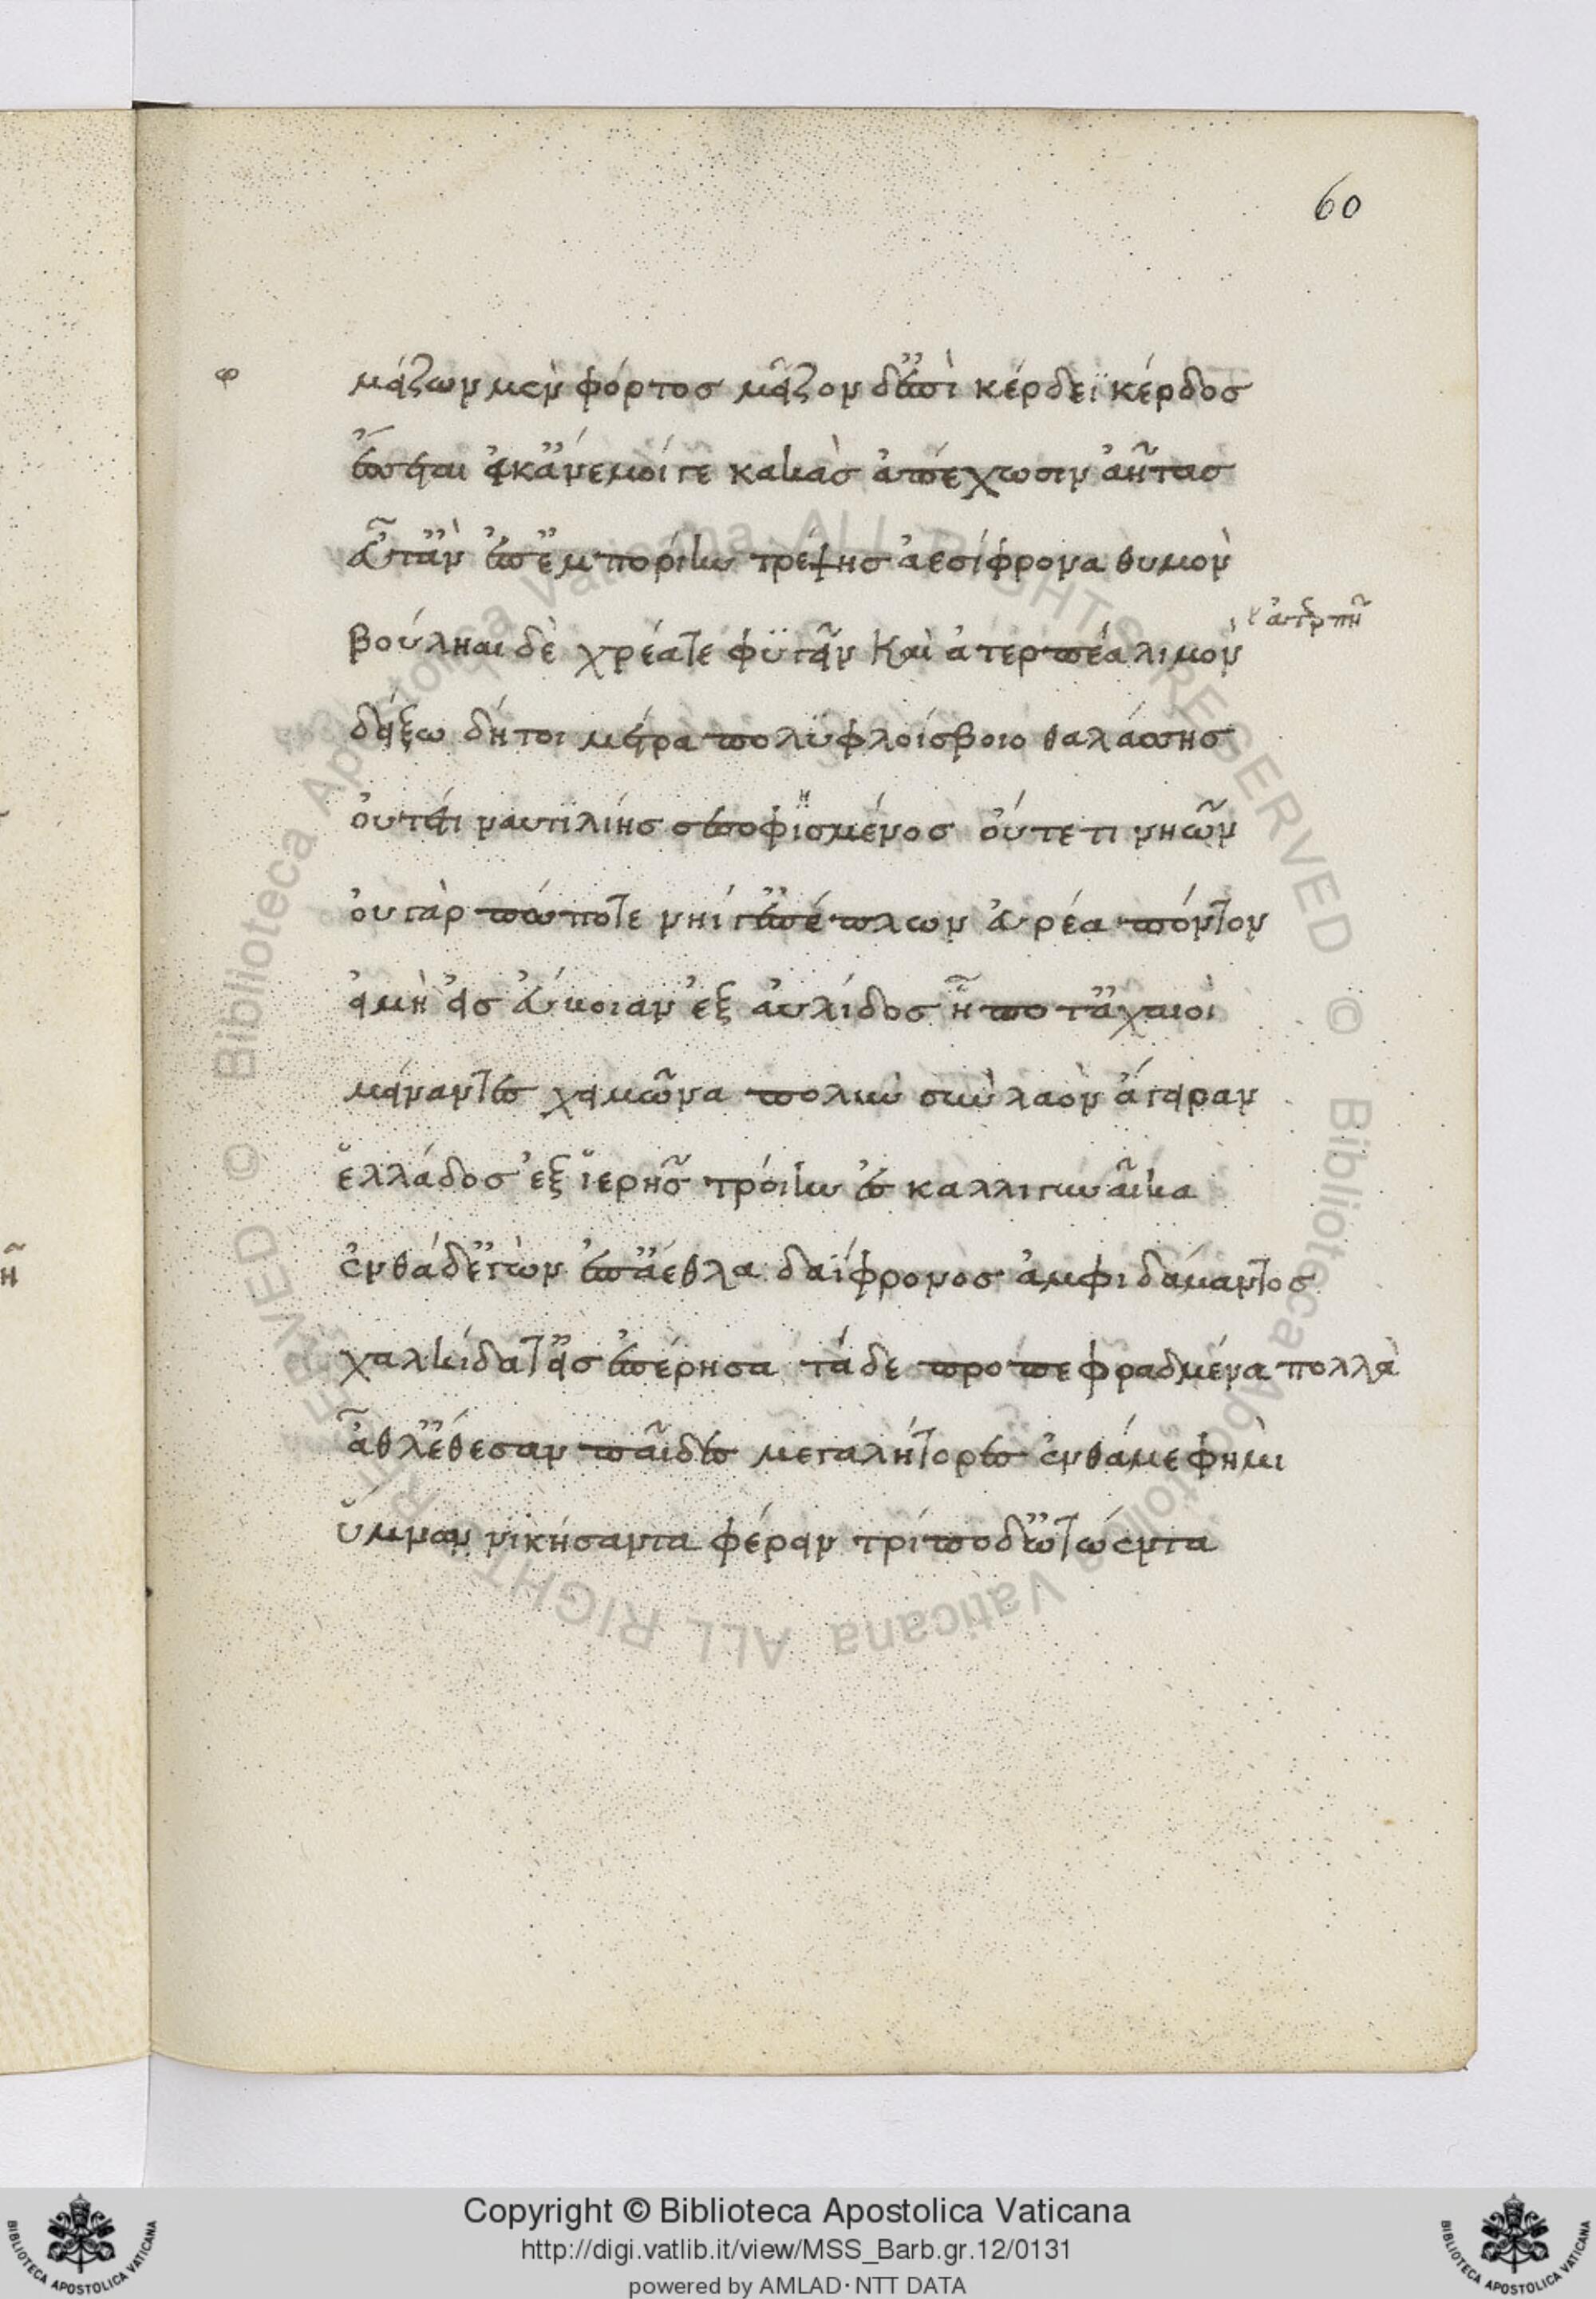 60
φ
μείζων μὲν φόρτος μεῖζον δ' ἐπὶ κέρδεϊ κέρδος
ἔσσεται εἴ κ' ἄνεμοί γε κακὰς ἀπέχωσιν ἀήτας
εὖτ' ἂν ἐπ' ἐμπορίην τρέψης ἀεσίφρονα θυμὸν
βούληαι δὲ χρέα τε φϋγεῖν καὶ ἀτερπέα λιμὸν
δείξω δή τοι μέτρα πολυφλοίσβοιο θαλάσσης
οὔτέ τι ναυτιλίης σεσοφϊσμένος οὔτε τι νηῶν
η
οὐ γὰρ πώποτε νηί γ' ἐπέπλων εὐρέα πόντον
εἰ μὴ εἰς εὔβοιαν ἐξ αὐλίδος ἧ ποτ' ἀχαιοὶ
μείναντες χειμῶνα πολὺν σὺν λαὸν ἄγειραν
ἑλλάδος ἐξ ἱερῆς τροίην ἐς καλλιγύναικα
ἐνθάδ' ἐγὼν ἐπ' ἄεθλα δαΐφρονος ἀμφιδάμαντος
χαλκίδα τ' εἰς ἐπέρησα τά δε προπεφραδμένα πολλὰ
ἆθλ' ἔθεσαν παῖδες μεγαλήτορες ἔνθά με φημι
ὕμνω νικήσαντα φέρειν τρίποδ' ὠτώεντα
Copyright © Biblioteca Apostolica Vaticana
http://digi.vatlib.it/view/MSS_Barb.gr.12/0131
powered by AMLAD·NTT DATA
BIBLIOTECA APOSTOLICA VATICANA
BIBLIOTECA APOSTOLICA VATICANA